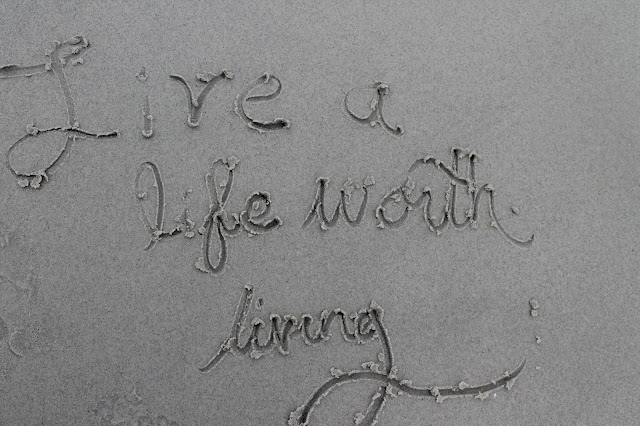 Live a
life worth
living